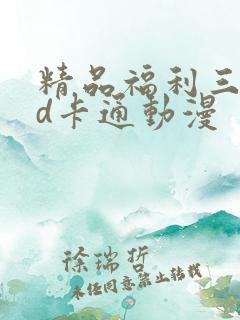 精品福利三
d卡通動漫
徐瑞哲
未经同意禁止转载